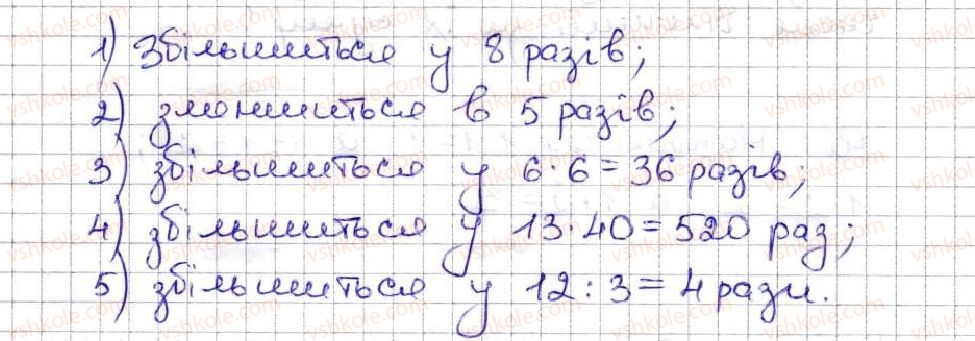 1) Збільшиться у 8 разів;
2) зменшиться в 5 разів;
3) збільшиться у 6·6=36 разів;
4) збільшиться у 13·40=520 раз;
5) збільшиться у 12:3=4 рази.